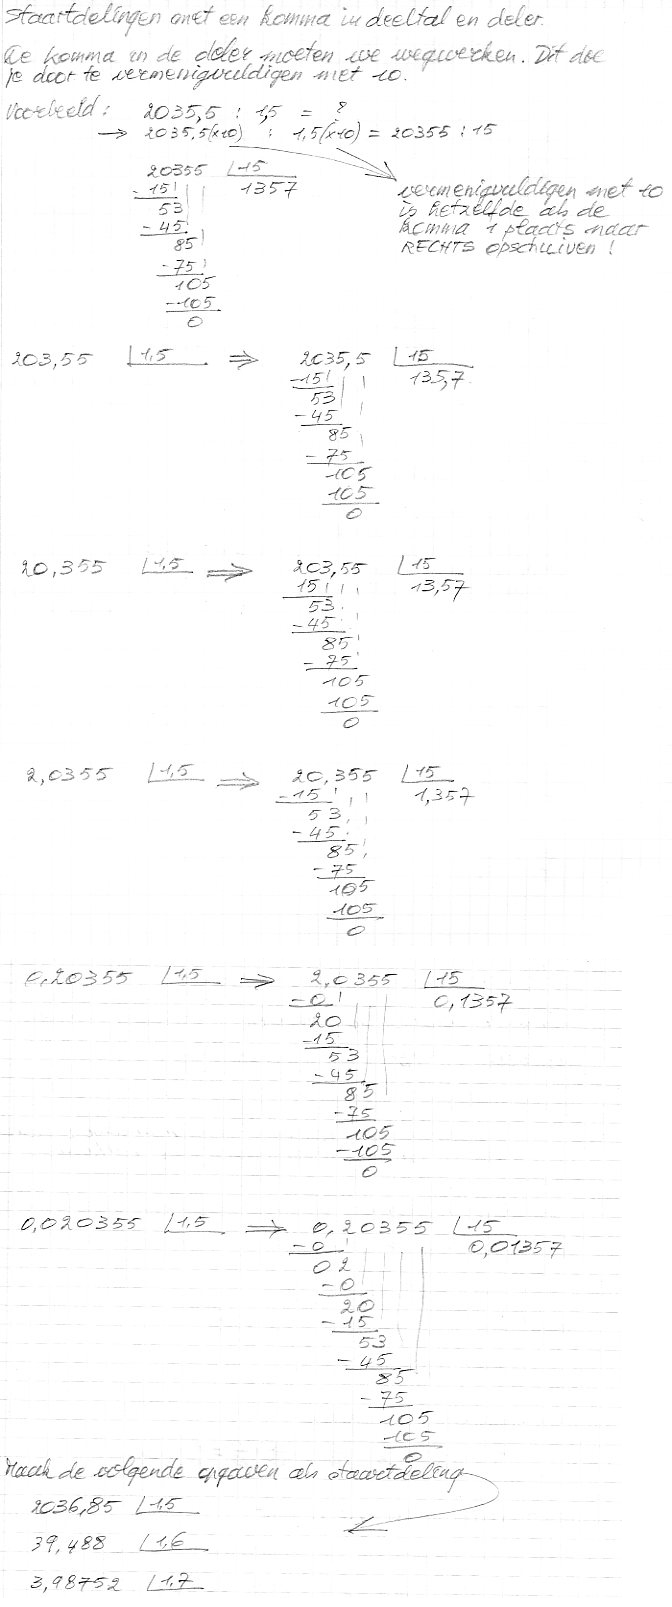 Staartdelingen met een komma in deeltal en deler.
De komma in de deler moeten we wegwerken. Dit doe
je door te vermenigvuldigen met 10.
Voorbeeld: 2035,5 : 1,5 = ?
→ 2035,5(x10) : 1,5(x10) = 20355 : 15
20355 15
-15 1357
53
-45
85
-75
105
-105
0
vermenigvuldigen met 10
is hetzelfde als de
komma 1 plaats naar
RECHTS opschuiven !
203,55 1,5 ⇒ 2035,5 15
-15 135,7
53
-45
85
-75
105
105
0
20,355 1,5 ⇒ 203,55 15
15 13,57
53
-45
85
-75
105
105
0
2,0355 1,5 ⇒ 20,355 15
-15 1,357
53
-45
85
-75
105
105
0
0,20355 1,5 ⇒ 2,0355 15
-0 0,1357
20
-15
53
-45
85
-75
105
-105
0
0,020355 1,5 ⇒ 0,20355 15
-0 0,01357
02
-0
20
-15
53
-45
85
-75
105
105
0
Maak de volgende opgaven als staartdeling
2036,85 1,5
39,488 1,6
3,98752 1,7